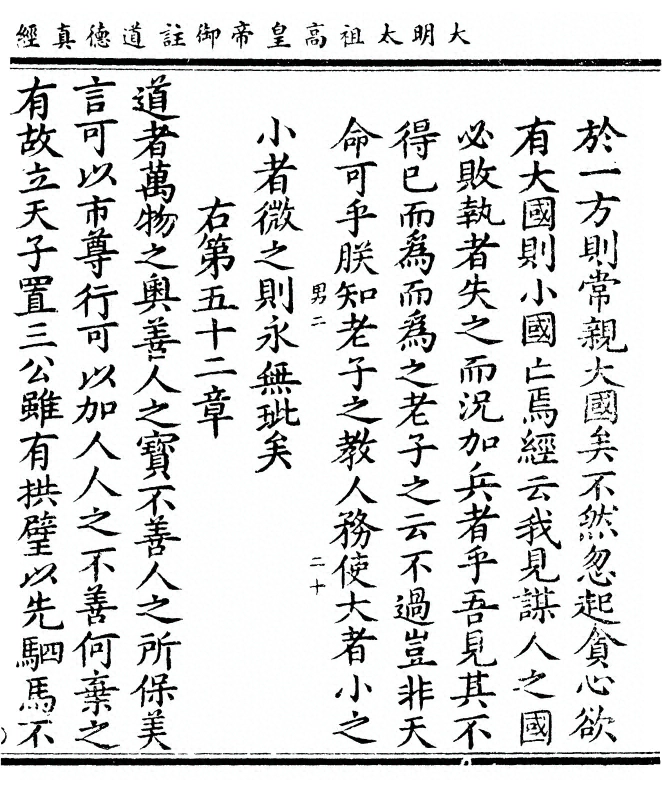 大明太祖高皇帝御註道德真經
於一方則常親大國矣不然忽起貪心欲
有大國則小國亡焉經云我見謀人之國
必敗執者失之而況加兵者乎吾見其不
得已而爲而爲之老子之云不過豈非天
命可乎朕知老子之教人務使大者小之
男二
二十
小者微之則永無玼矣
右第五十二章
道者萬物之奧善人之寶不善人之所保美
言可以市尊行可以加人人之不善何棄之
有故立天子置三公雖有拱璧以先駟馬不